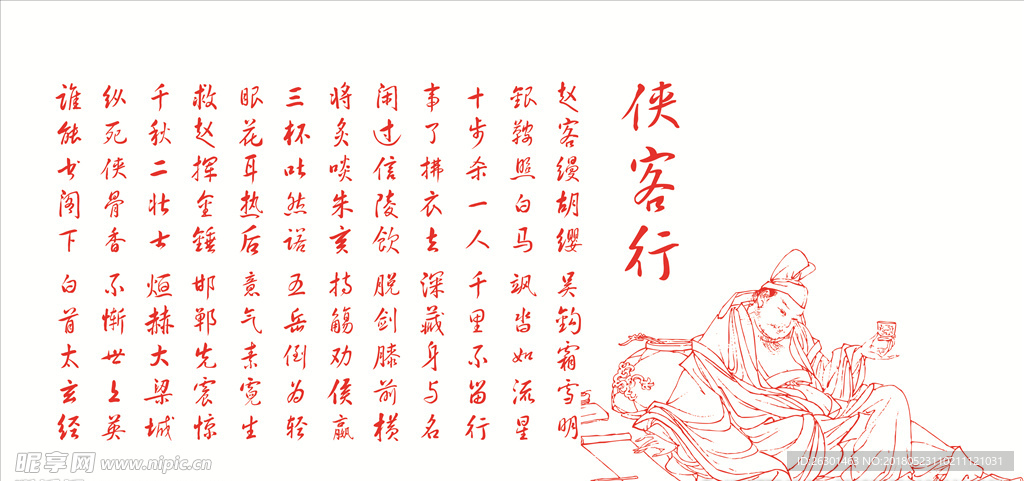 侠客行
赵客缦胡缨 吴钩霜雪明
银鞍照白马 飒沓如流星
十步杀一人 千里不留行
事了拂衣去 深藏身与名
闲过信陵饮 脱剑膝前横
将炙啖朱亥 持觞劝侯嬴
三杯吐然诺 五岳倒为轻
眼花耳热后 意气素霓生
救赵挥金锤 邯郸先震惊
千秋二壮士 烜赫大梁城
纵死侠骨香 不惭世上英
谁能书阁下 白首太玄经
昵享网 www.nipic.cn
ID:26301463 NO:20180523110211121031